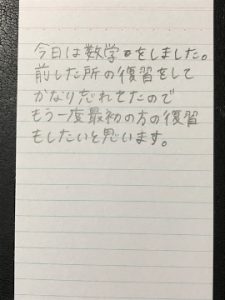 今日は数学をしました。
前した所の復習をして
かなり忘れてたので
もう一度最初の方の復習
もしたいと思います。